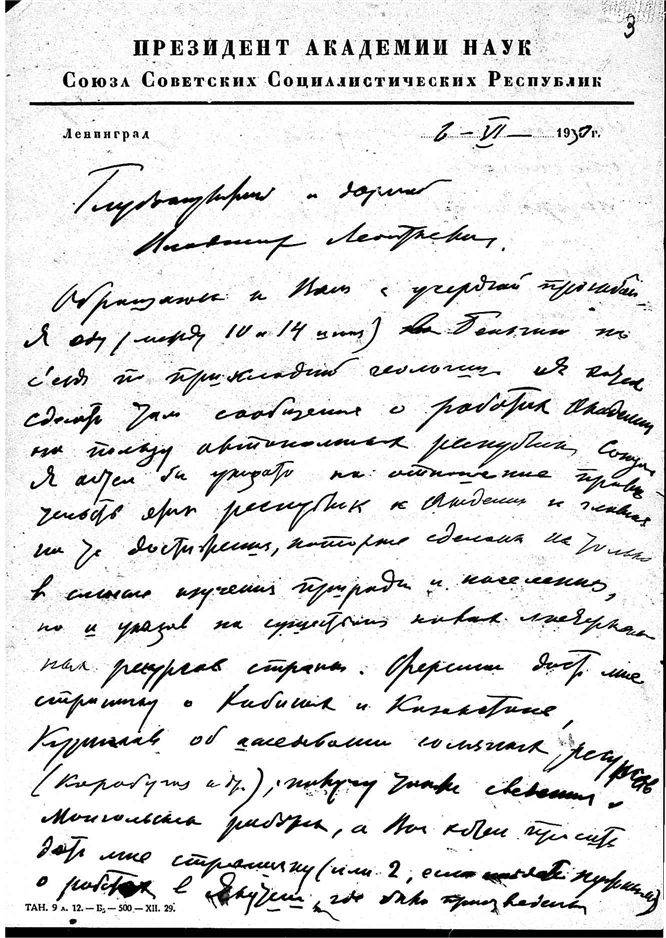 3
ПРЕЗИДЕНТ АКАДЕМИИ НАУК
Союза Советских Социалистических Республик
Ленинград
6 – VI – 1930 г.
Глубокоуважаемый и дорогой
Владимир Леонтьевич,
Обращаюсь к Вам с усердной просьбой
Я еду (между 10 и 14 июня) в Бельгию на
съезд по прикладной геологии и я хочу
сделать там сообщение о работах Академии
на пользу автономных республик Союза
Я хотел бы указать на отношение прави
тельств этих республик к Академии и главное
на те достижения, которые сделаны не только
в смысле изучения природы и населения,
но и указав на существование новых
ных ресурсов страны. Ферсман даст мне
страничку о Хибинах и Казахстане,
Курнаков об исследовании соляных ресурсов
(Карабугаз и др.), получу также сведения о
Монгольских работах, а Вас хочу просить
дать мне страничку (или 2, если
о работах в Якутии, где было произведены
ТАН. 9 л. 12. — Б₅ — 500 — XII. 29.